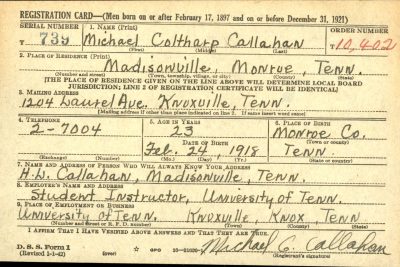 REGISTRATION CARD—(Men born on or after February 17, 1897 and on or before December 31, 1921)
SERIAL NUMBER 1. NAME (Print) ORDER NUMBER
T 739 Michael Coltharp Callahan T10,402
(First) (Middle) (Last)
2. PLACE OF RESIDENCE (Print)
Madisonville, Monroe, Tenn.
(Number and street) (Town, township, village, or city) (County) (State)
[THE PLACE OF RESIDENCE GIVEN ON THE LINE ABOVE WILL DETERMINE LOCAL BOARD
JURISDICTION; LINE 2 OF REGISTRATION CERTIFICATE WILL BE IDENTICAL]
3. MAILING ADDRESS
1204 Laurel Ave. Knoxville, Tenn.
[Mailing address if other than place indicated on line 2. If same insert word same]
4. TELEPHONE 5. AGE IN YEARS 6. PLACE OF BIRTH
2-7004 23 Monroe Co.
DATE OF BIRTH (Town or county)
Feb. 24, 1918 Tenn.
(Exchange) (Number) (Mo.) (Day) (Yr.) (State or country)
7. NAME AND ADDRESS OF PERSON WHO WILL ALWAYS KNOW YOUR ADDRESS
H.D. Callahan, Madisonville, Tenn.
8. EMPLOYER'S NAME AND ADDRESS
Student Instructor, University of Tenn.
9. PLACE OF EMPLOYMENT OR BUSINESS
University of Tenn. Knoxville, Knox, Tenn.
(Number and street or R. F. D. number) (Town) (County) (State)
I AFFIRM THAT I HAVE VERIFIED ABOVE ANSWERS AND THAT THEY ARE TRUE.
D. S. S. Form 1 GPO Michael C. Callahan
(Revised 1-1-42) (over) (Registrant's signature)